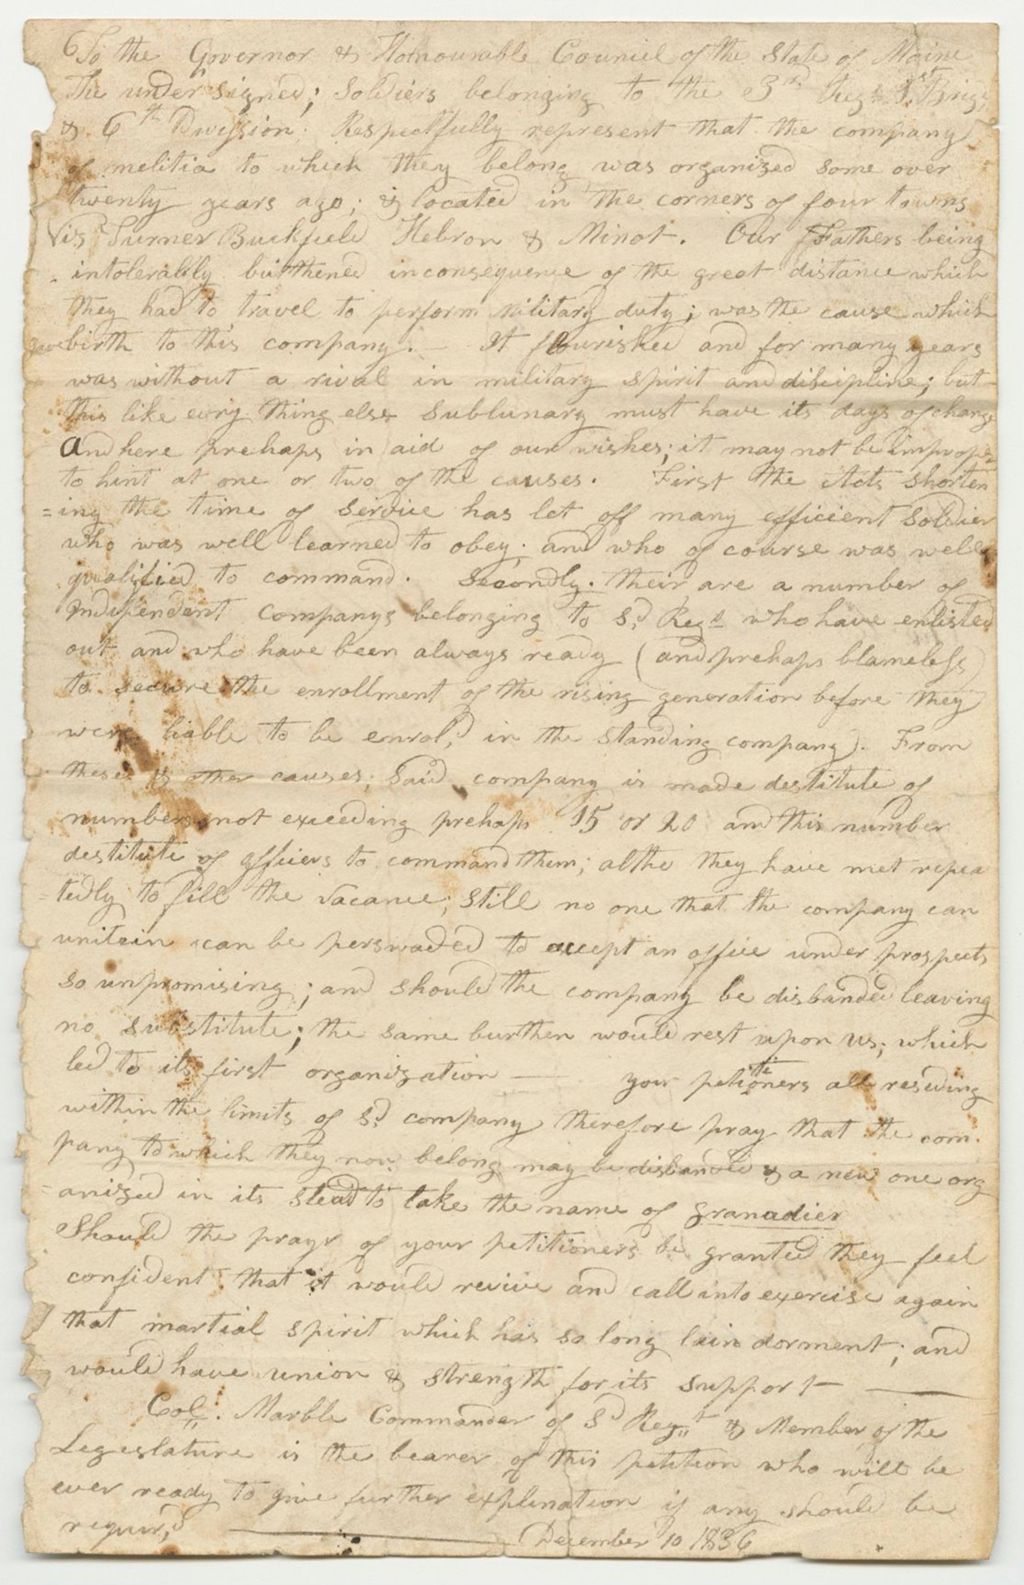 To the Governor & Honourable Council of the State of Maine
The undersigned; Soldiers belonging to the 3rd Regt 1st Brig
& 6th Division: Respectfully represent that the company
of melitia to which they belong was organized some over
twenty years ago; & located in the corners of four towns
Vis Turner Buckfield Hebron & Minot. Our Fathers being
intolerablly burthened inconsequence of the great distance which
they had to travel to perform military duty; was the cause which
gave birth to this company. – It flourished and for many years
was without a rival in military spirit and discipline; but
this like evry thing else sublunary must have its days of change
And here prehaps in aid of our wishes; it may not be improper
to hint at one or two of the causes. First the Acts shorten
=ing the time of service has let off many efficient Soldier
who was well learned to obey; and who of course was well
qualified to command. Secondly. their are a number of
Independent Companys belonging to Sd Regt who have enlisted
out and who have been always ready (and prehaps blameless)
to secure the enrollment of the rising generation before they
were liable to be enrol,d in the standing company). From
these & other causes; Said company is made destitute of
numbers not exceeding prehaps 15 or 20 and this number
destitute of officers to command them; altho they have met repea
=tedly to fill the vacance; still no one that the company can
unite in can be perswaded to accept an office under prospects
so unpromising; and should the company be disbanded leaving
no substitute; the same burthen would rest upon us; which
led to its first organization — your petitioners all resideing
within the limits of Sd company therefore pray that the com-
pany to which they now belong may be disbanded & a new one org
=anized in its stead to take the name of granadier
Should the prayr of your petitioners be granted they feel
confident that it would revive and call into exercise again
that martial spirit which has so long lain dorment; and
would have union & strength for its support —
Col. Marble Commander of Sd Regt & Member of the
Legeslature is the bearer of this petition who will be
ever ready to give further explination if any should be
requir,d — December 10 1836